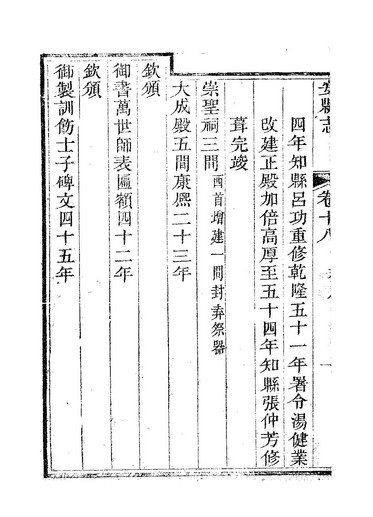 安縣志
卷十八
四年知縣呂功重修乾隆五十一年署令湯健業
改建正殿加倍高厚至五十四年知縣張仲芳修
葺完竣
崇聖祠三間西首增建一間封弆祭器
大成殿五間康熙二十三年
欽頒
御書萬世師表匾額四十二年
欽頒
御製訓飭士子碑文四十五年